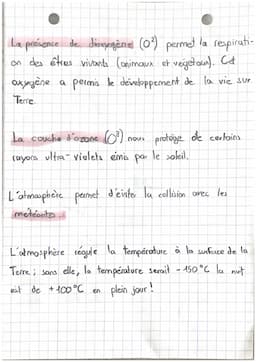 La présence de dioxygène (O²) permet la respirati-
on des êtres vivants (animaux et végétaux). Cet
oxygène a permis le développement de la vie sur
Terre.
La couche d'ozone (O³) nous protège de certains
rayons ultra-violets émis par le soleil.
L'atmosphère permet d'éviter la collision avec les
météorites.
L'atmosphère régule la température à la surface de la
Terre ; sans elle, la température serait -150°C la nuit
et de +100°C en plein jour!